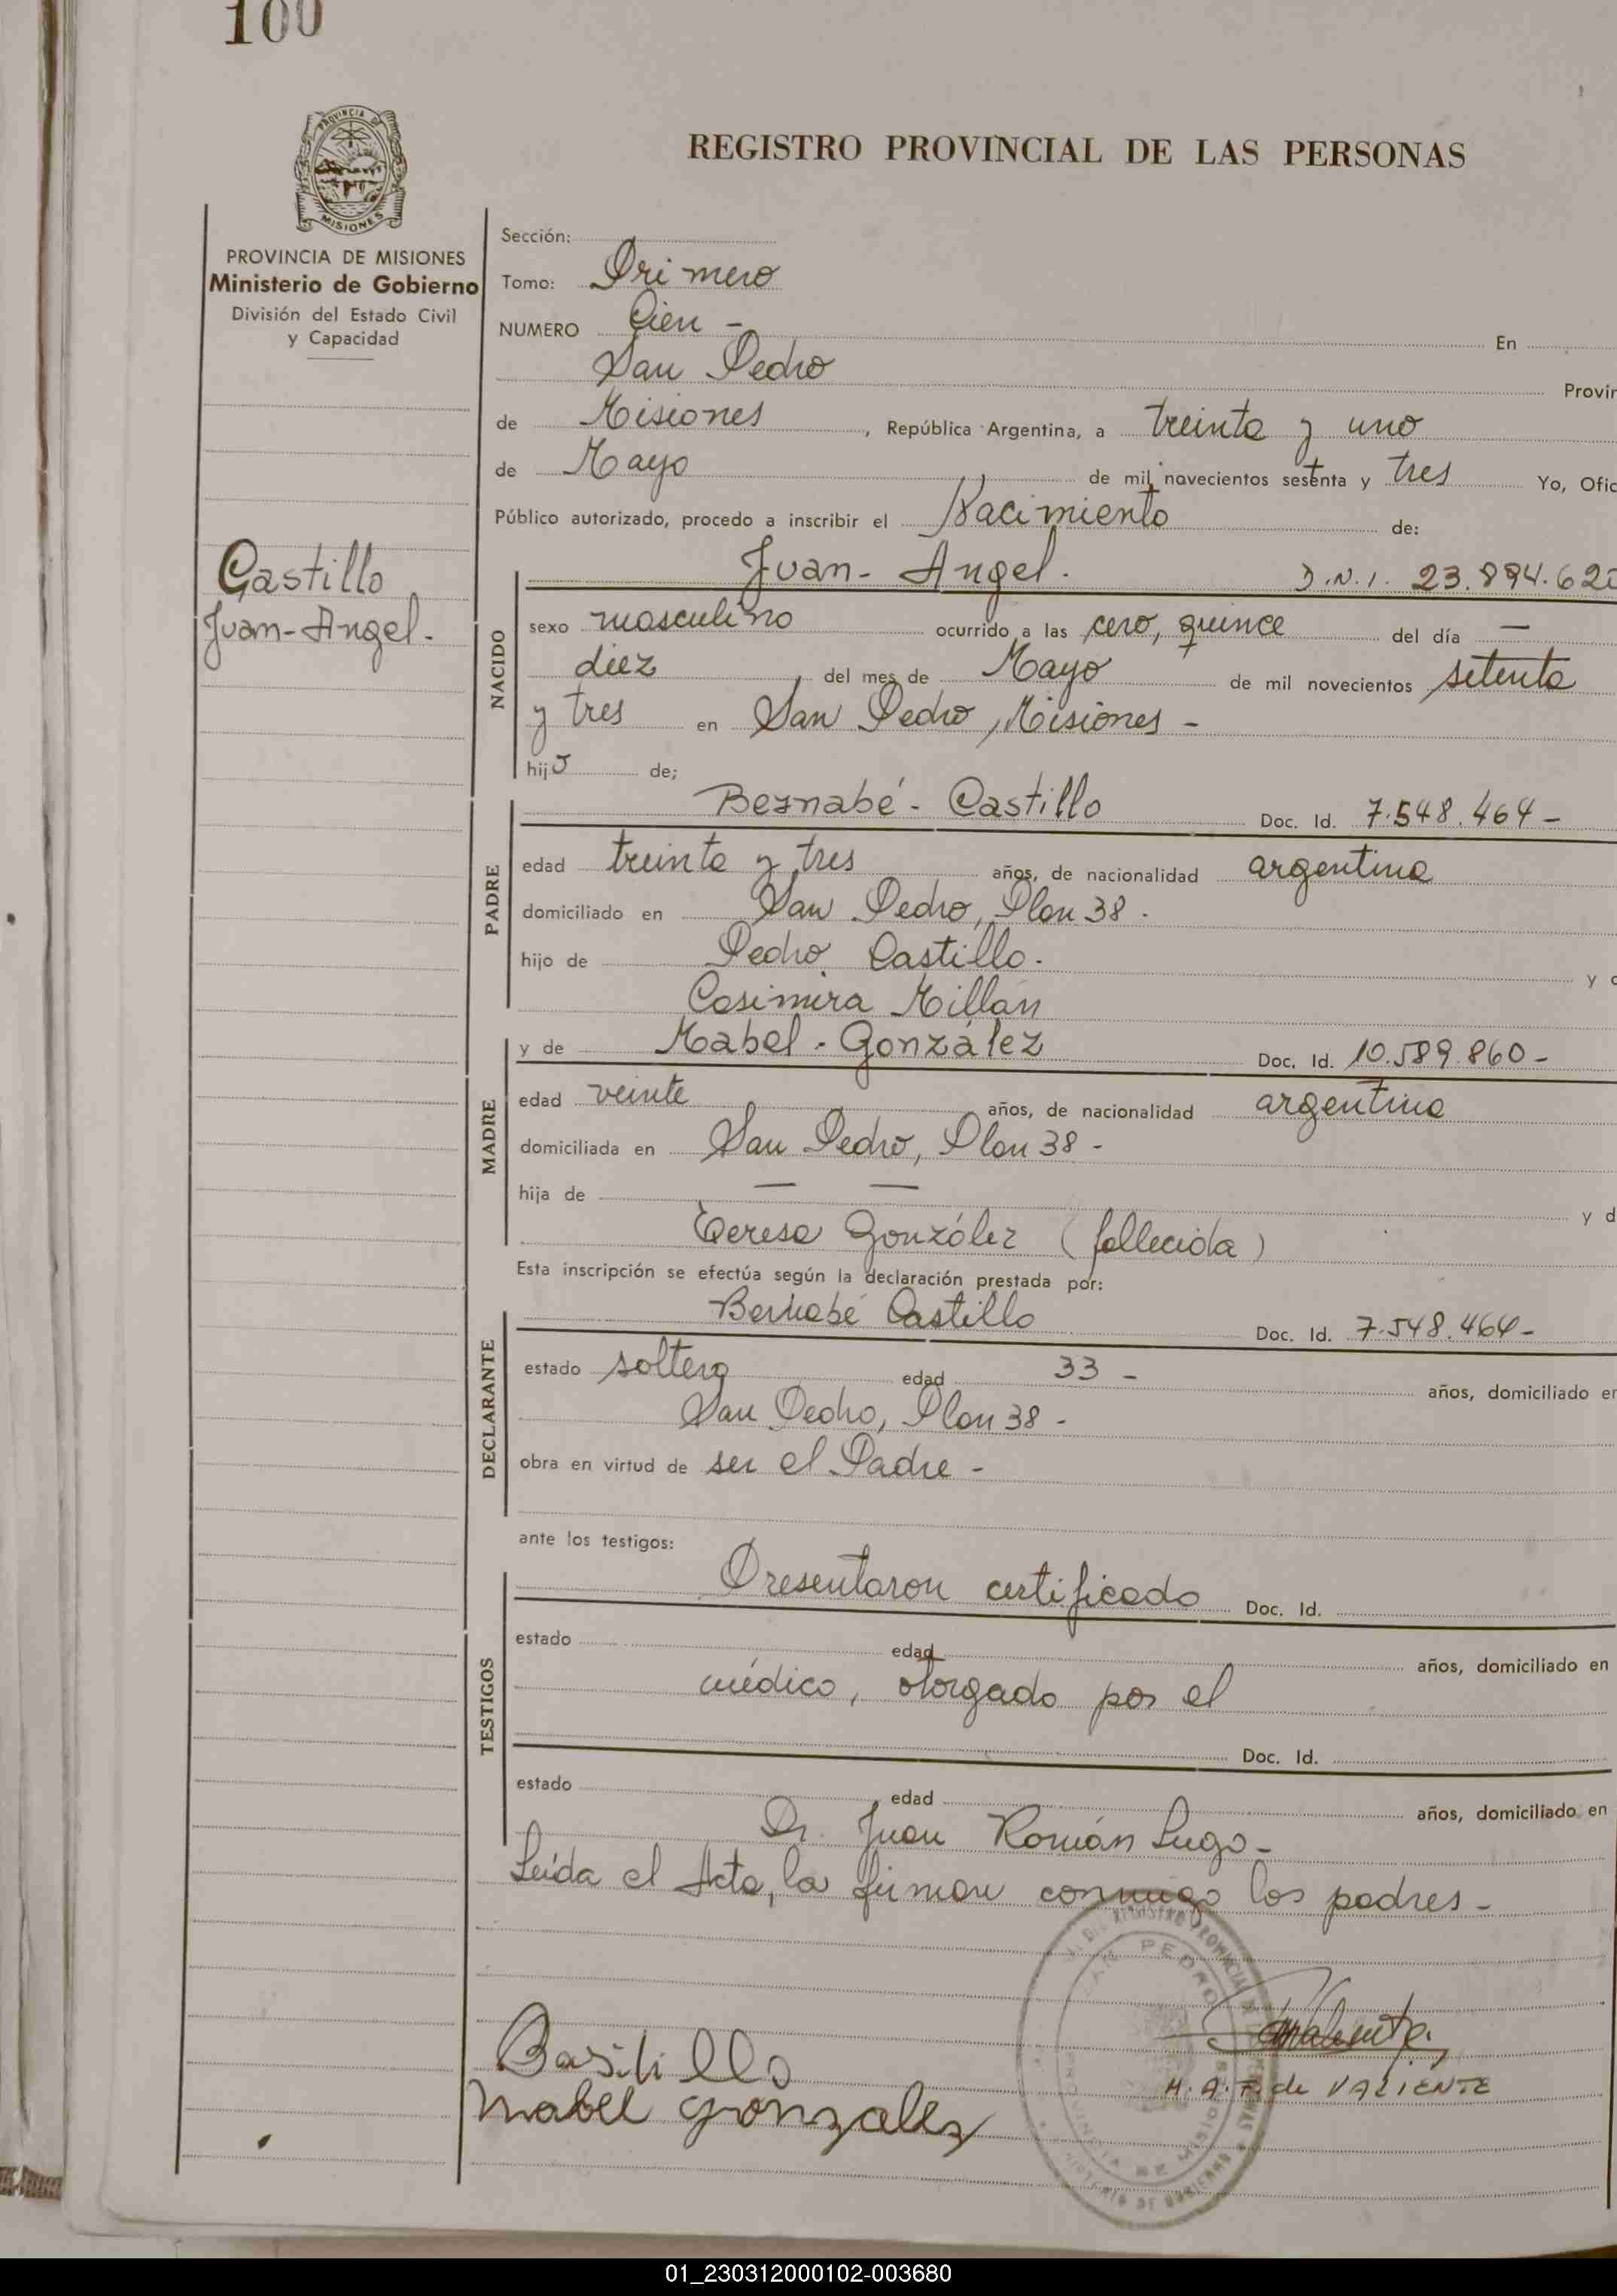 100
REGISTRO PROVINCIAL DE LAS PERSONAS
PROVINCIA DE MISIONES
Ministerio de Gobierno
División del Estado Civil
y Capacidad
Sección:
Tomo: Primero
NUMERO Cien - En
San Pedro Provin
de Misiones, República Argentina, a treinta y uno
de Mayo de mil novecientos sesenta y tres Yo, Ofic
Público autorizado, procedo a inscribir el Nacimiento de:
Castillo
Juan-Angel.-
NACIDO
Juan- Angel. D.N.I. 23.894.62
sexo masculino ocurrido a las cero, quince del día —
diez del mes de Mayo de mil novecientos setenta
y tres en San Pedro, Misiones -
hijo de;
PADRE
Bernabé- Castillo Doc. Id. 7.548.464-
edad treinta y tres años, de nacionalidad argentina
domiciliado en San Pedro, Plan 38.
hijo de Pedro Castillo. y d
Casimira Millán
MADRE
y de Mabel - González Doc. Id. 10.589.860-
edad veinte años, de nacionalidad argentina
domiciliada en San Pedro, Plan 38 -
hija de — — y d
Teresa González (fallecida)
Esta inscripción se efectúa según la declaración prestada por:
DECLARANTE
Bernabé Castillo Doc. Id. 7.548.464-
estado soltero edad 33 - años, domiciliado en
San Pedro, Plan 38 -
obra en virtud de ser el Padre -
ante los testigos:
TESTIGOS
Presentaron certificado Doc. Id.
estado edad años, domiciliado en
médico, otorgado por el
Doc. Id.
estado edad años, domiciliado en
Dr. Juan Román Lugo-
Leída el Acta, la firman conmigo los padres -
Mabel Gonzalez
H. A. F. de VALIENTE
SAN PEDRO
PROVINCIA DE MISIONES
01_230312000102-003680